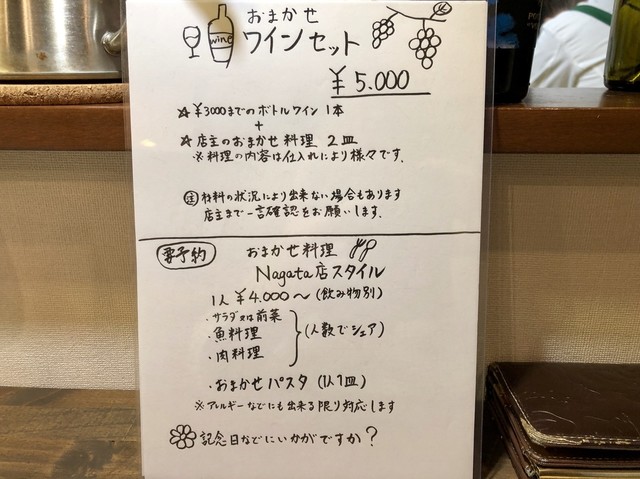 wine
おまかせ
ワインセット
¥5.000
☆¥3000までのボトルワイン 1本
+
☆店主のおまかせ料理 2皿
※料理の内容は仕入れにより様々です.
注 材料の状況により出来ない場合もあります
店主まで一言確認をお願いします.
要予約
おまかせ料理
Nagata店スタイル
1人 ¥4.000～(飲み物別)
・サラダ又は前菜
・魚料理
・肉料理
(人数でシェア)
・おまかせパスタ (1人1皿)
※アレルギーなどにも出来る限り対応します
記念日などにいかがですか?